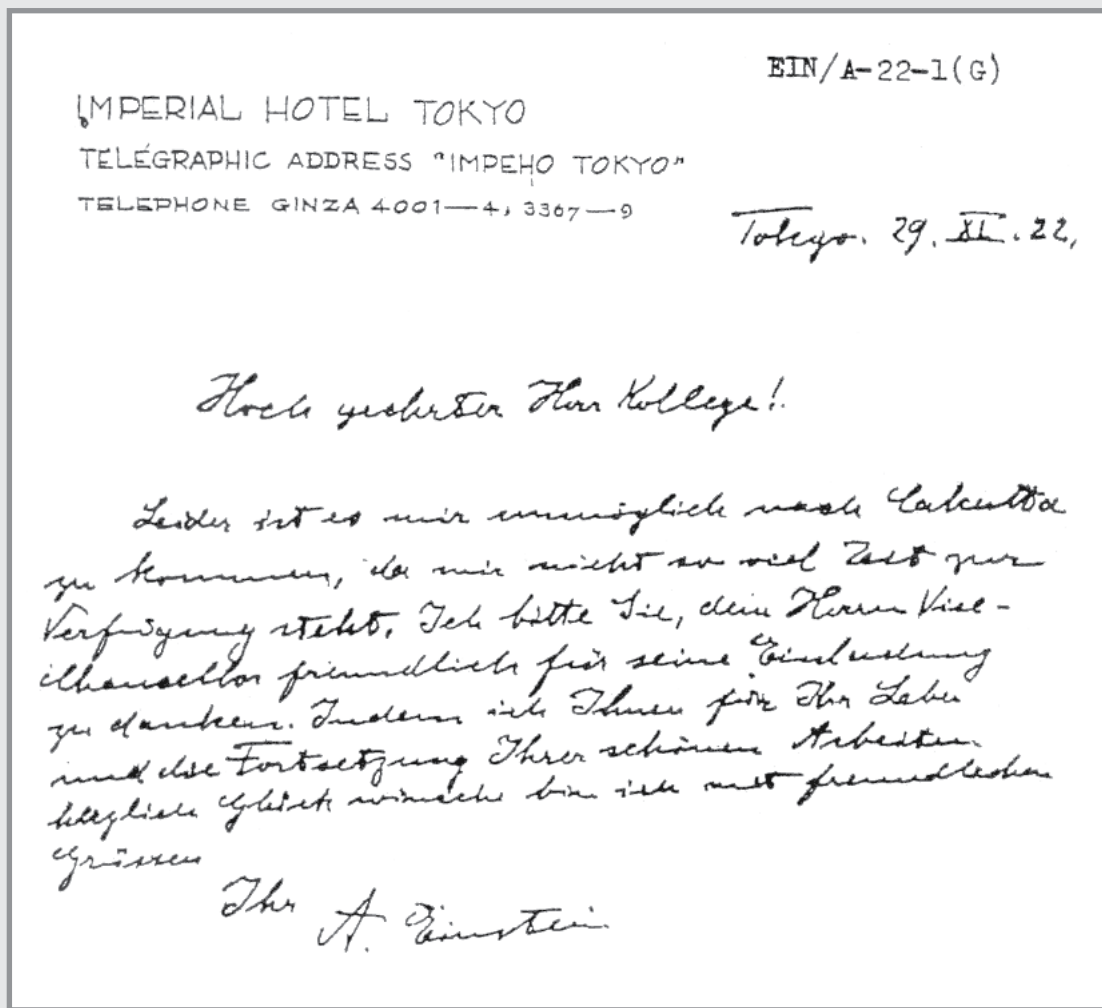 EIN/A-22-1(G)
IMPERIAL HOTEL TOKYO
TELEGRAPHIC ADDRESS "IMPEHO TOKYO"
TELEPHONE GINZA 4001—4, 3367—9
Tokyo. 29. XI. 22.
Hoch geehrter Herr Kollege!
Leider ist es mir unmöglich nach Calcutta
zu kommen, da mir nicht so viel Zeit zur
Verfügung steht. Ich bitte Sie, dem Herrn Vice-
Chancellor freundlich für seine Einladung
zu danken. Indem ich Ihnen für Ihr Leben
und die Fortsetzung Ihrer schönen Arbeiten
herzlich Glück wünsche bin ich mit freundlichen
Grüssen
Ihr
A. Einstein.